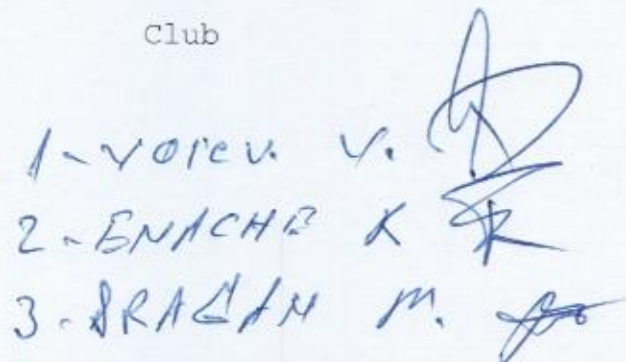 Club
1-VOICU. V.
2-ENACHE K
3-DRAGAN M.